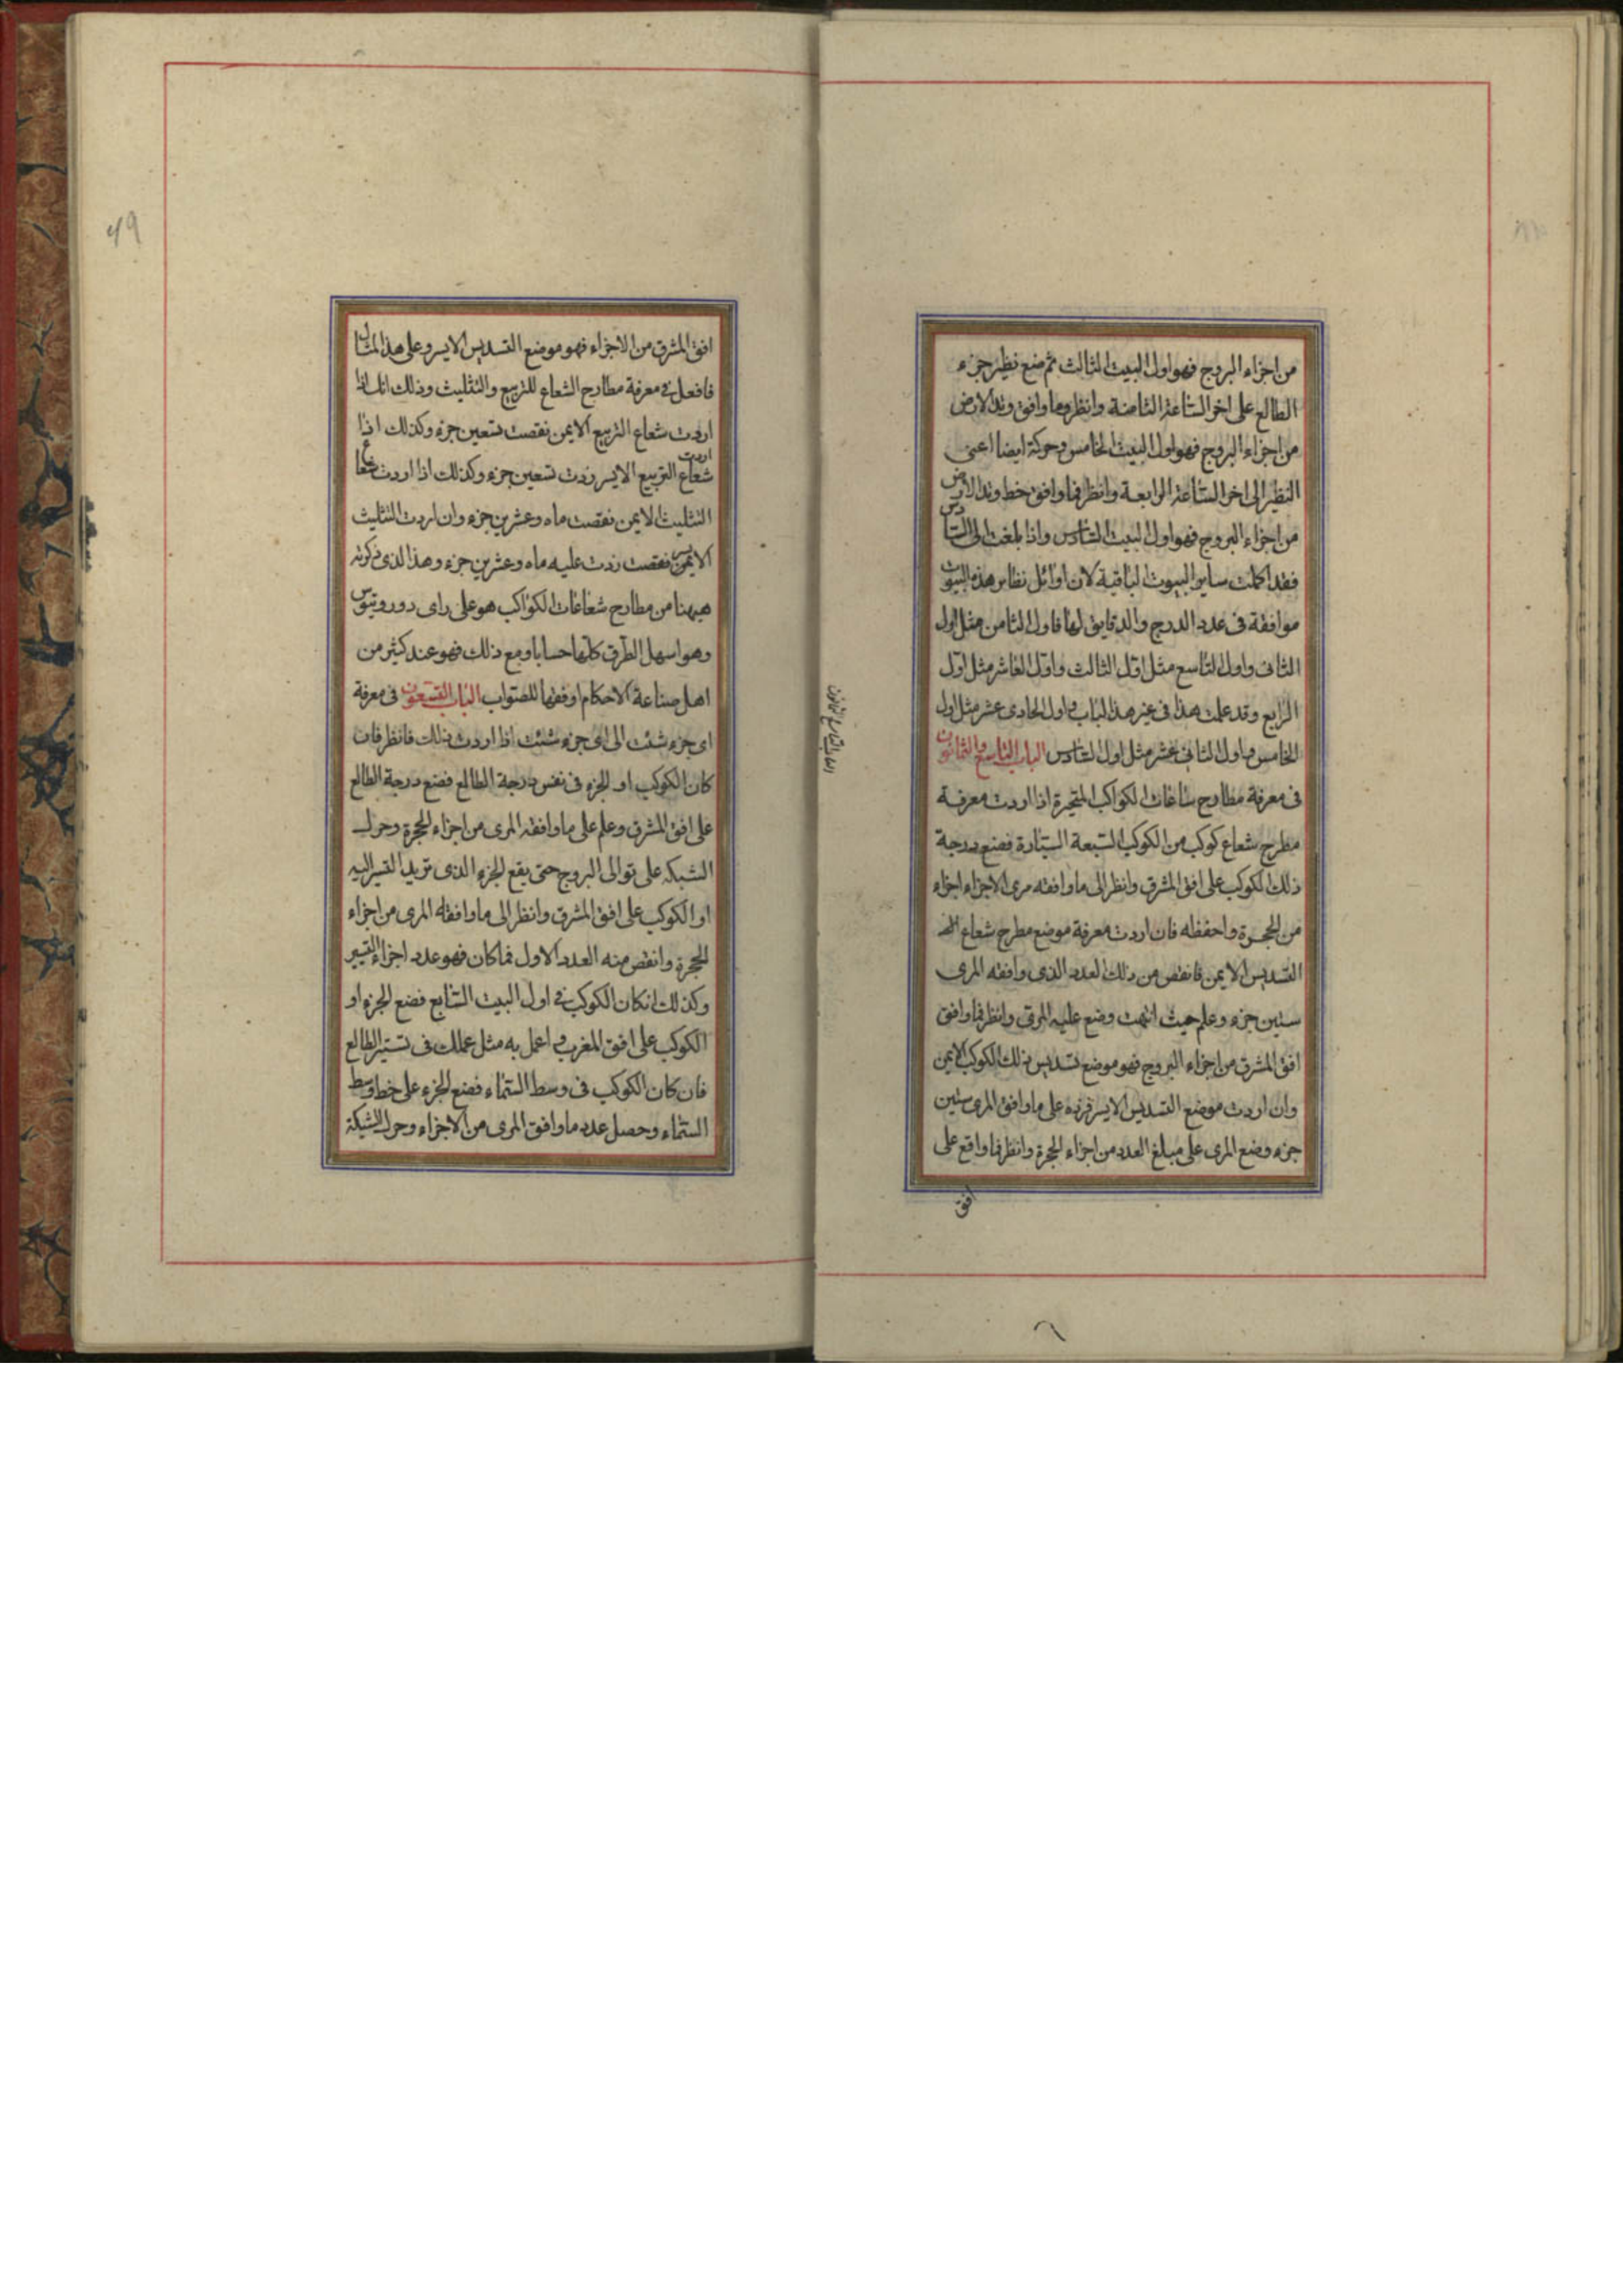 من اجزاء البروج فهو اول البيت الثالث ثم ضع نظير جزء
الطالع على اخر الساعة الثامنة وانظر وما وافق وتد الارض
من اجزاء البروج فهو اول البيت الخامس وحركة ايضا اعنى
النظير الى اخر الساعة الرابعة وانظر فما وافق خط وتد الارض
من اجزاء البروج فهو اول البيت السادس واذا بلغت الى السادس
فقد اكملت ساير البيوت الباقية لان اوائل نظاير هذه البيوت
موافقة فى عدد الدرج والدقايق لها فاول الثامن مثل اول
الثانى واول التاسع مثل اول الثالث واول العاشر مثل اول
الرابع وقد علمت هذا فى غير هذا الباب واول الحادى عشر مثل اول
الخامس واول الثانى عشر مثل اول السادس الباب التاسع والثمانون
فى معرفة مطارح شاعات الكواكب المتحيرة اذا اردت معرفة
مطرح شعاع كوكب من الكوكب السبعة السيارة فضع درجة
ذلك الكوكب على افق المشرق وانظر الى ما وافقه مرى الاجزاء اجزاء
من الحجرة واحفظه فان اردت معرفة موضع مطرح شعاع
التسديس الايمن فانقص من ذلك العدد الذى وافقه المرى
ستين جزء وعلم حيث انتهت وضع عليه المرى وانظر فما وافق
افق المشرق من اجزاء البروج فهو موضع تسديس ذلك الكوكب الايمن
وان اردت موضع التسديس الايسر فزده على ما وافق المرى ستين
جزء وضع المرى على مبلغ العدد من اجزاء الحجرة وانظر فما واقع على
افق
الباب التاسع والثمانون
٤٩
افق المشرق من الاجزاء فهو موضع التسديس الايسر وعلى هذا المثال
فافعل فى معرفة مطارح الشعاع للتربيع والتثليث وذلك انك اذا
اردت شعاع التربيع الايمن نقصت تسعين جزء وكذلك اذا
اردت
شعاع التربيع الايسر زدت تسعين جزء وكذلك اذا اردت شعاع
التثليث الايمن نقصت ماه وعشرين جزء وان اردت التثليث
الايمن فقصت زدت عليه ماه وعشرين جزء وهذا الذى ذكرته
هيهنا من مطارح شعاعات الكواكب هو على راى دوروتيوس
وهو اسهل الطرق كلها حسابا ومع ذلك فهو عند كثير من
اهل صناعة الاحكام اوفقها للصواب الباب التسعون فى معرفة
اى جزء شئت الى اى جزء شئت اذا اردت ذلك فانظر فان
كان الكوكب او الجزء فى نفس درجة الطالع فضع درجة الطالع
على افق المشرق وعلم على ما وافقه المرى من اجزاء الحجرة وحرك
الشبكه على توالى البروج حتى يقع الجزء الذى تريد التسير اليه
او الكوكب على افق المشرق وانظر الى ما وافقه المرى من اجزاء
الحجرة وانقص منه العدد الاول فما كان فهو عدد اجزاء التسيير
وكذلك انكان الكوكب فى اول البيت السابع فضع الجزء او
الكوكب على افق المغرب واعمل به مثل عملك فى تسير الطالع
فان كان الكوكب فى وسط السماء فضع الجزء على خط وسط
السماء وحصل عدد ما وافق المرى من الاجزاء وحرك الشبكة